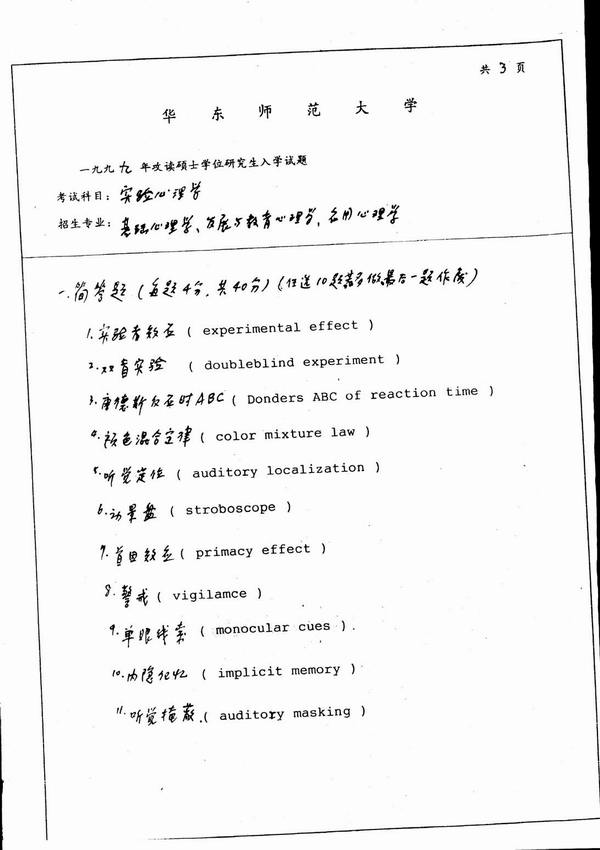 共 3 页
华东师范大学
一九九九年攻读硕士学位研究生入学试题
考试科目：实验心理学
招生专业：基础心理学、发展与教育心理学、应用心理学
一.简答题（每题4分，共40分）（任选10题，多做最后一题作废）
1.实验者效应 ( experimental effect )
2.双盲实验 ( doubleblind experiment )
3.唐德斯反应时ABC ( Donders ABC of reaction time )
4.颜色混合定律 ( color mixture law )
5.听觉定位 ( auditory localization )
6.动景盘 ( stroboscope )
7.首因效应 ( primacy effect )
8.警戒 ( vigilamce )
9.单眼线索 ( monocular cues ).
10.内隐记忆 ( implicit memory )
11.听觉掩蔽.( auditory masking )